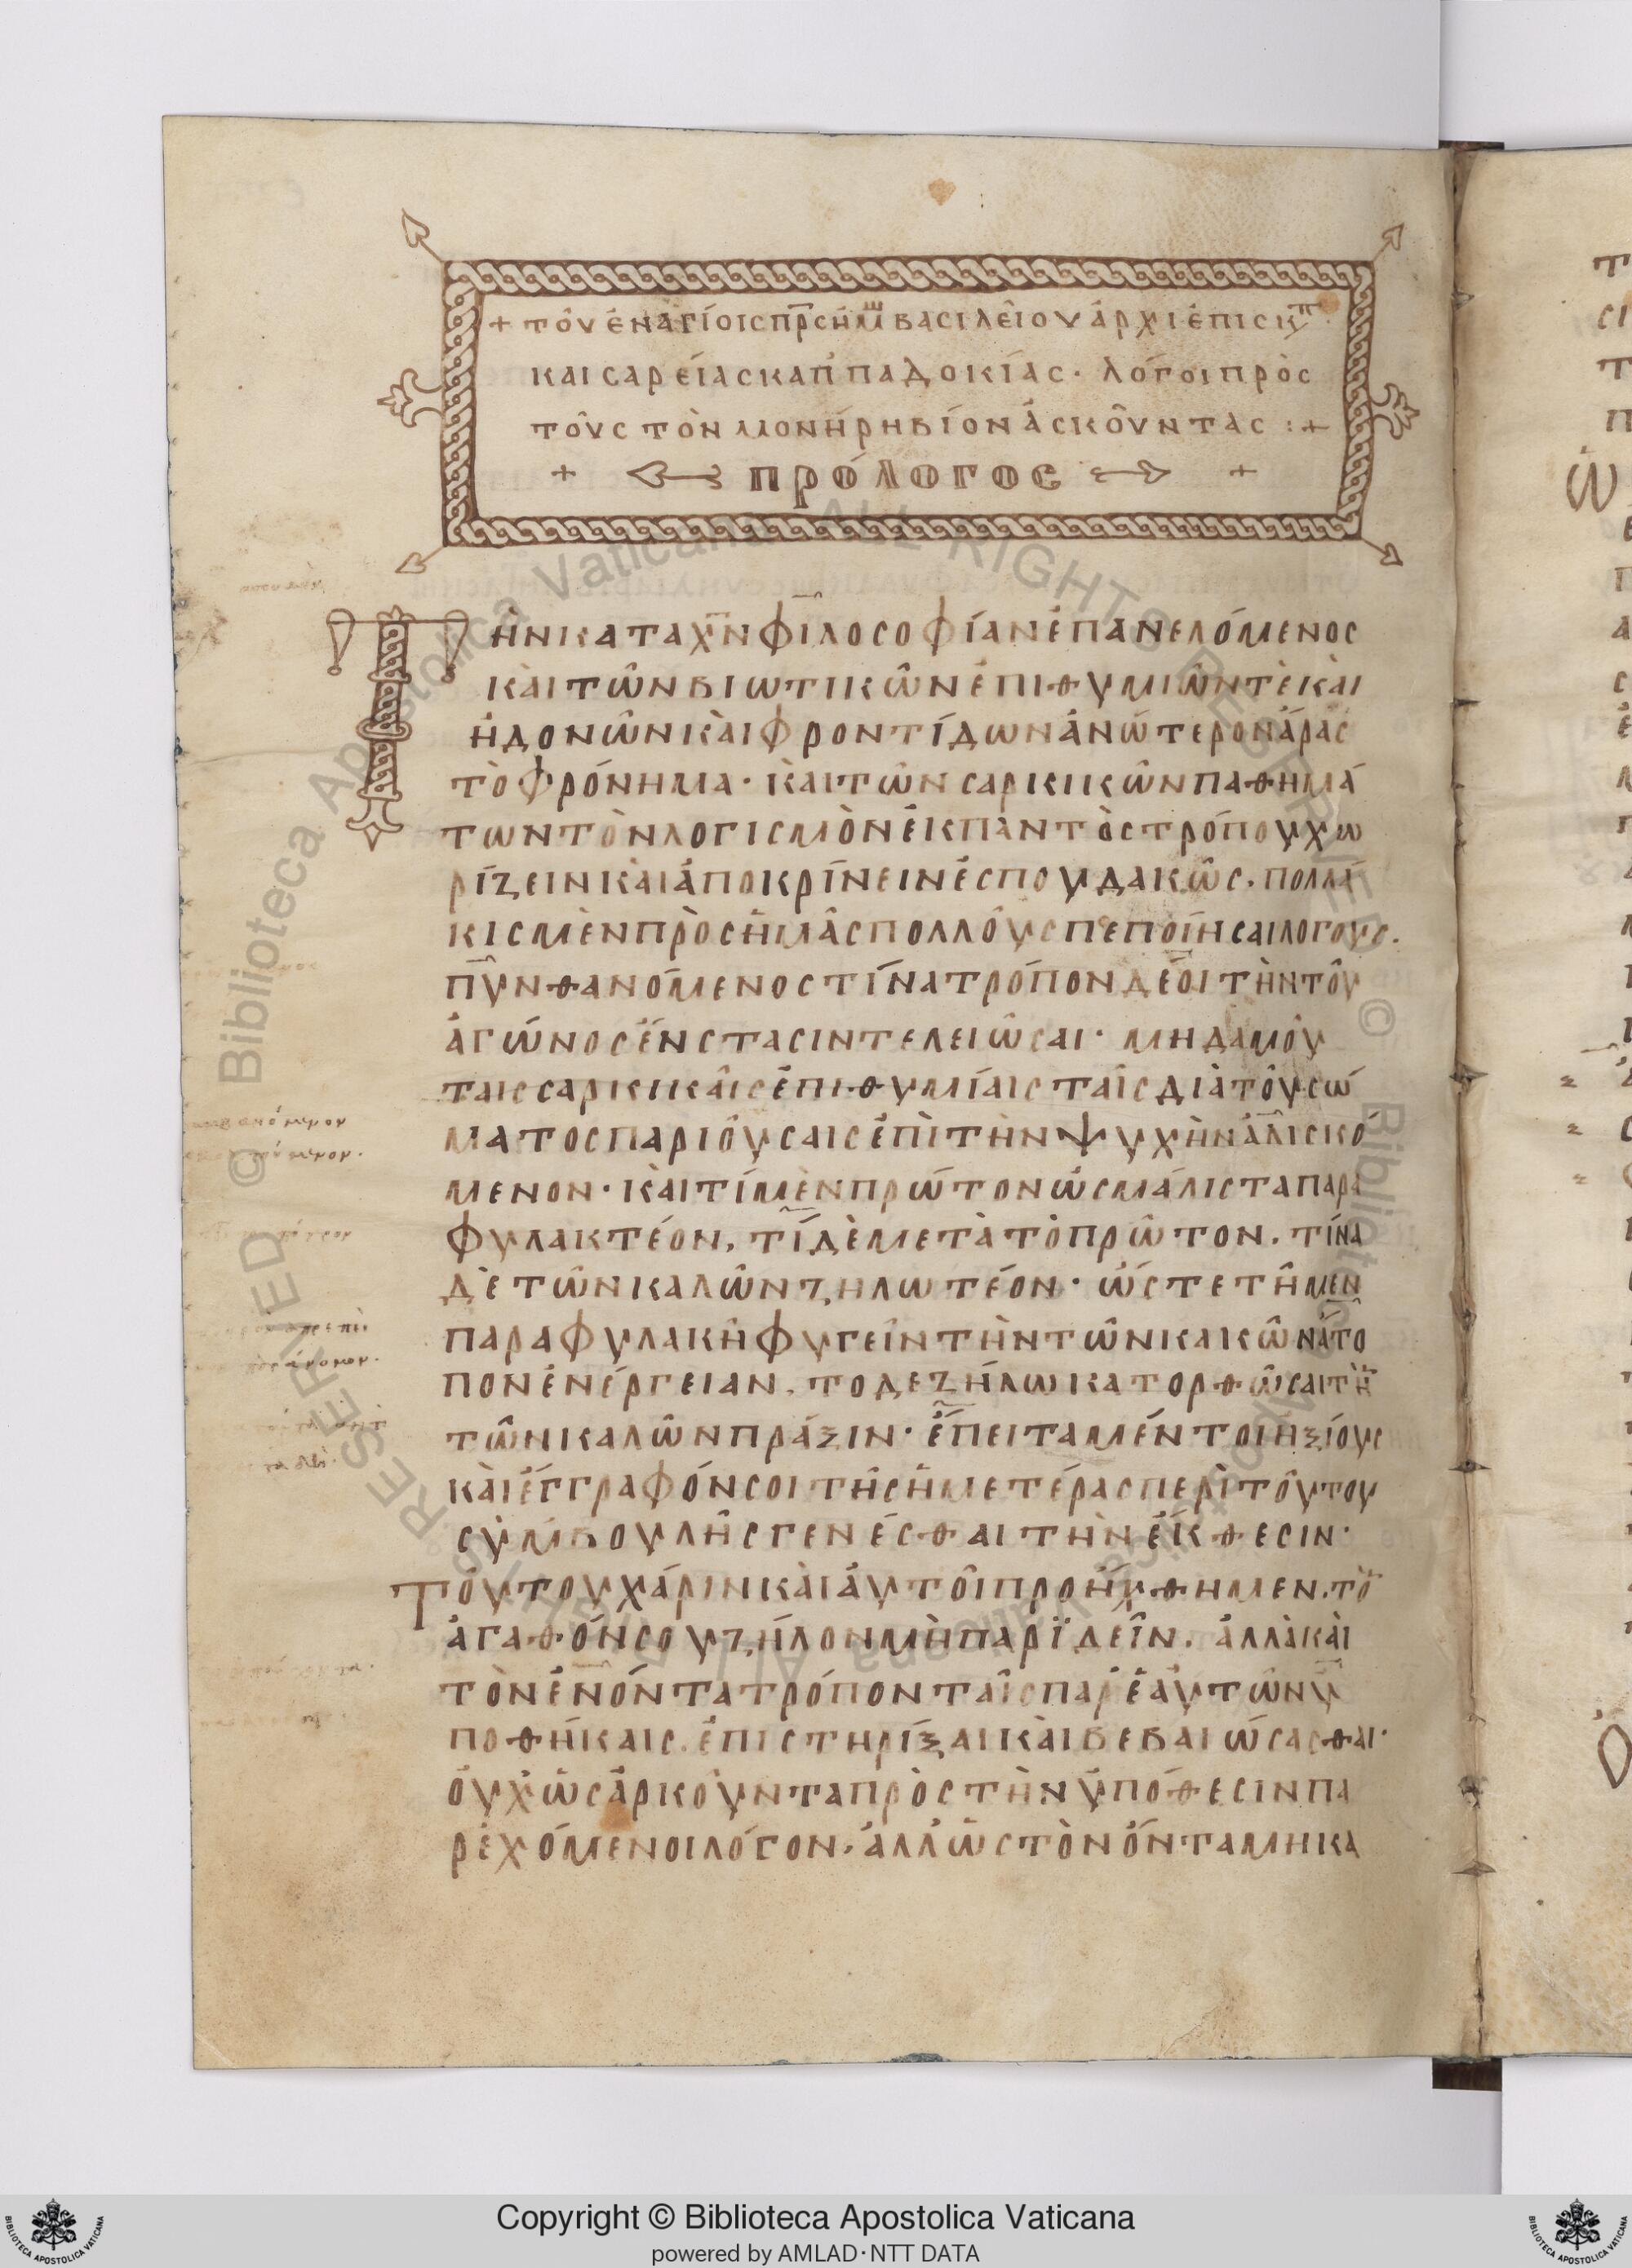 + τοῦ ἐν ἁγίοις πρς ἡμ Βασιλείου ἀρχιεπισκπ
Καισαρείας Καππαδοκίας · λόγοι πρὸς
τοὺς τὸν μονήρη βίον ἀσκοῦντας :+
+ πρόλογος +
Τὴν κατὰ χν φιλοσοφίαν ἐπανελόμενος
καὶ τῶν βιωτικῶν ἐπιθυμιῶν τὲ καὶ
ἡδονῶν καὶ φροντίδων ἀνώτερον ἄρας
τὸ φρόνημα · καὶ τῶν σαρκικῶν παθημά
των τὸν λογισμὸν ἐκ παντὸς τρόπου χω
ρίζειν καὶ ἀποκρίνειν ἐσπουδακῶς, πολλά
κις μὲν πρὸς ἡμᾶς πολλοὺς πεποίησαι λόγους.
πυνθανόμενος τίνα τρόπον δέοι τὴν τοῦ
ἀγώνος ἔνστασιν τελειῶσαι · μηδαμοῦ
ταις σαρκικαῖς ἐπιθυμίαις ταῖς διὰ τοῦ σώ
ματος παριούσαις ἐπὶ τὴν ψυχὴν ἁλισκό
μενον · καὶ τί μὲν πρώτον ὡς μάλιστα παρα
φυλακτέον, τί δὲ μετὰ τὸ πρῶτον, τίνα
δὲ τῶν καλῶν ζηλωτέον · ὥστε τῆ μεν
παραφυλακῆ φυγεῖν τὴν τῶν κακῶν ἄτο
πον ἐνέργειαν, το δε ζήλω κατορθῶσαι τὴ
τῶν καλῶν πράξιν · ἔπειτα μέντοι ἠξίους
καὶ ἔγγραφόν σοι τῆς ἡμετέρας περὶ τούτου
συμβουλῆς γενέσθαι τὴν ἔκθεσιν ·
Τούτου χάριν καὶ αὐτοὶ προήχθημεν, τὸ
ἀγαθόν σου ζήλον μὴ παρϊδεῖν, ἀλλὰ καὶ
τὸν ἐνόντα τρόπον ταῖς παρ ἑαυτῶν ὑ
ποθήκαις, ἐπιστηρίξαι καὶ βεβαιώσασθαι ·
οὐχ ὡς ἀρκοῦντα πρὸς τὴν ὑπόθεσιν πα
ρεχόμενοι λόγον, ἀλλ ὡς τὸν ὄντα μη κα
Copyright © Biblioteca Apostolica Vaticana
powered by AMLAD·NTT DATA
BIBLIOTECA APOSTOLICA VATICANA
BIBLIOTECA APOSTOLICA VATICANA